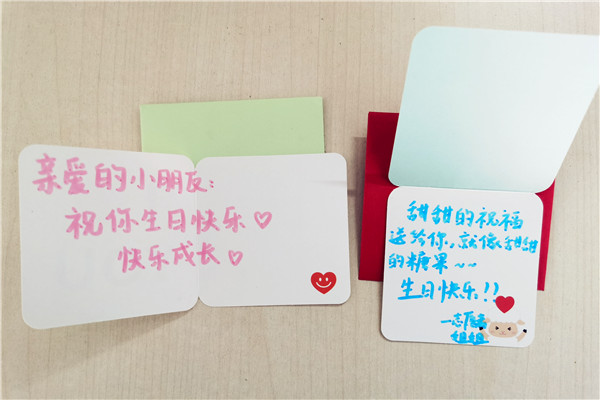 亲爱的小朋友：
祝你生日快乐♡
快乐成长♡
甜甜的祝福
送给你，就像甜甜
的糖果~~
生日快乐！！
姐姐